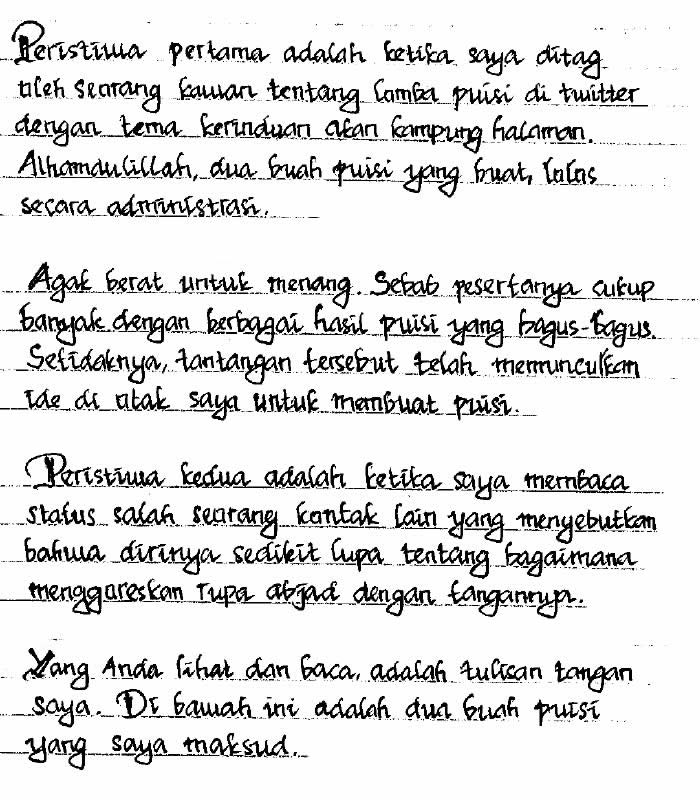 Peristiwa pertama adalah ketika saya ditag
oleh seorang kawan tentang lomba puisi di twitter
dengan tema kerinduan akan kampung halaman.
Alhamdulillah, dua buah puisi yang buat, lolos
secara administrasi.
Agak berat untuk menang. Sebab pesertanya cukup
banyak dengan berbagai hasil puisi yang bagus-bagus.
Setidaknya, tantangan tersebut telah memunculkan
ide di otak saya untuk membuat puisi.
Peristiwa kedua adalah ketika saya membaca
status salah seorang kontak lain yang menyebutkan
bahwa dirinya sedikit lupa tentang bagaimana
menggoreskan rupa abjad dengan tangannya.
Yang Anda lihat dan baca, adalah tulisan tangan
saya. Di bawah ini adalah dua buah puisi
yang saya maksud.